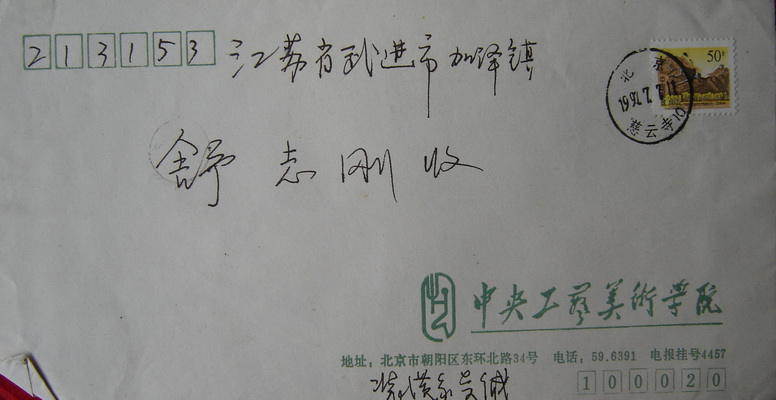 213153 江苏省武进市加泽镇
50分
北京
慈云寺
舒志刚收
中央工艺美術学院
地址:北京市朝阳区东环北路34号 电话:59.6391 电报挂号4457
100020